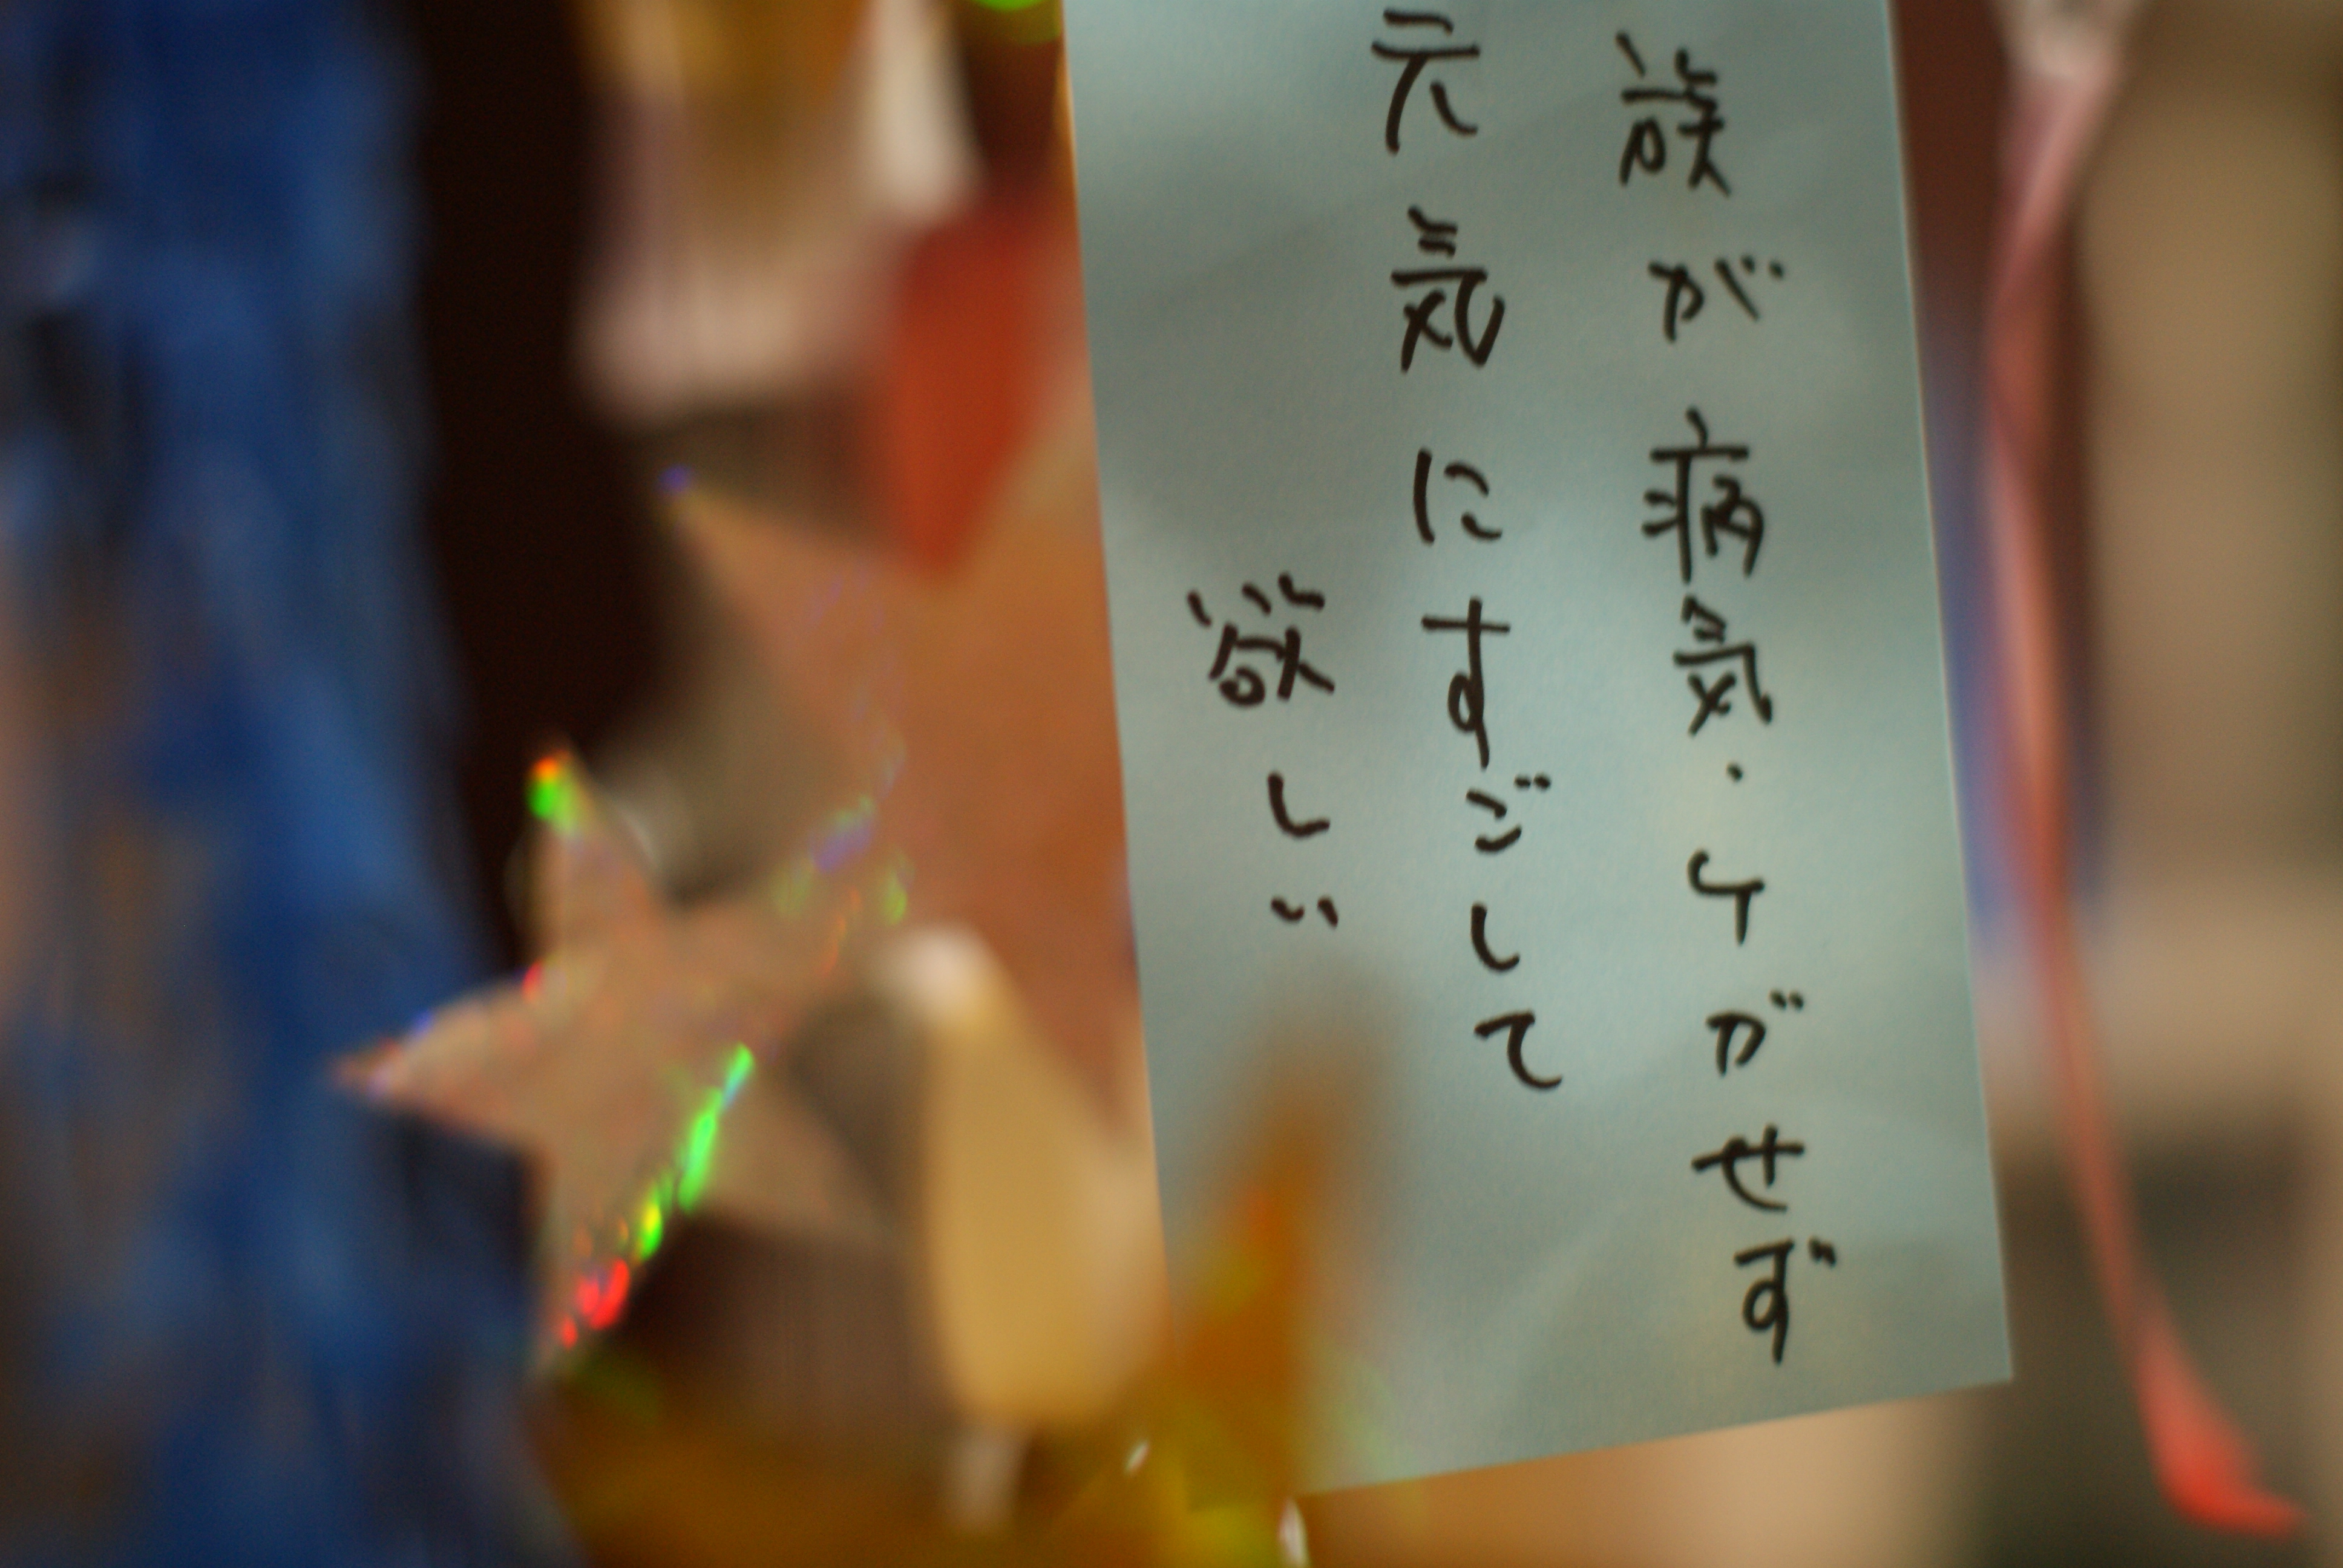 族が病気・ケガせず
元気にすごして
欲しい